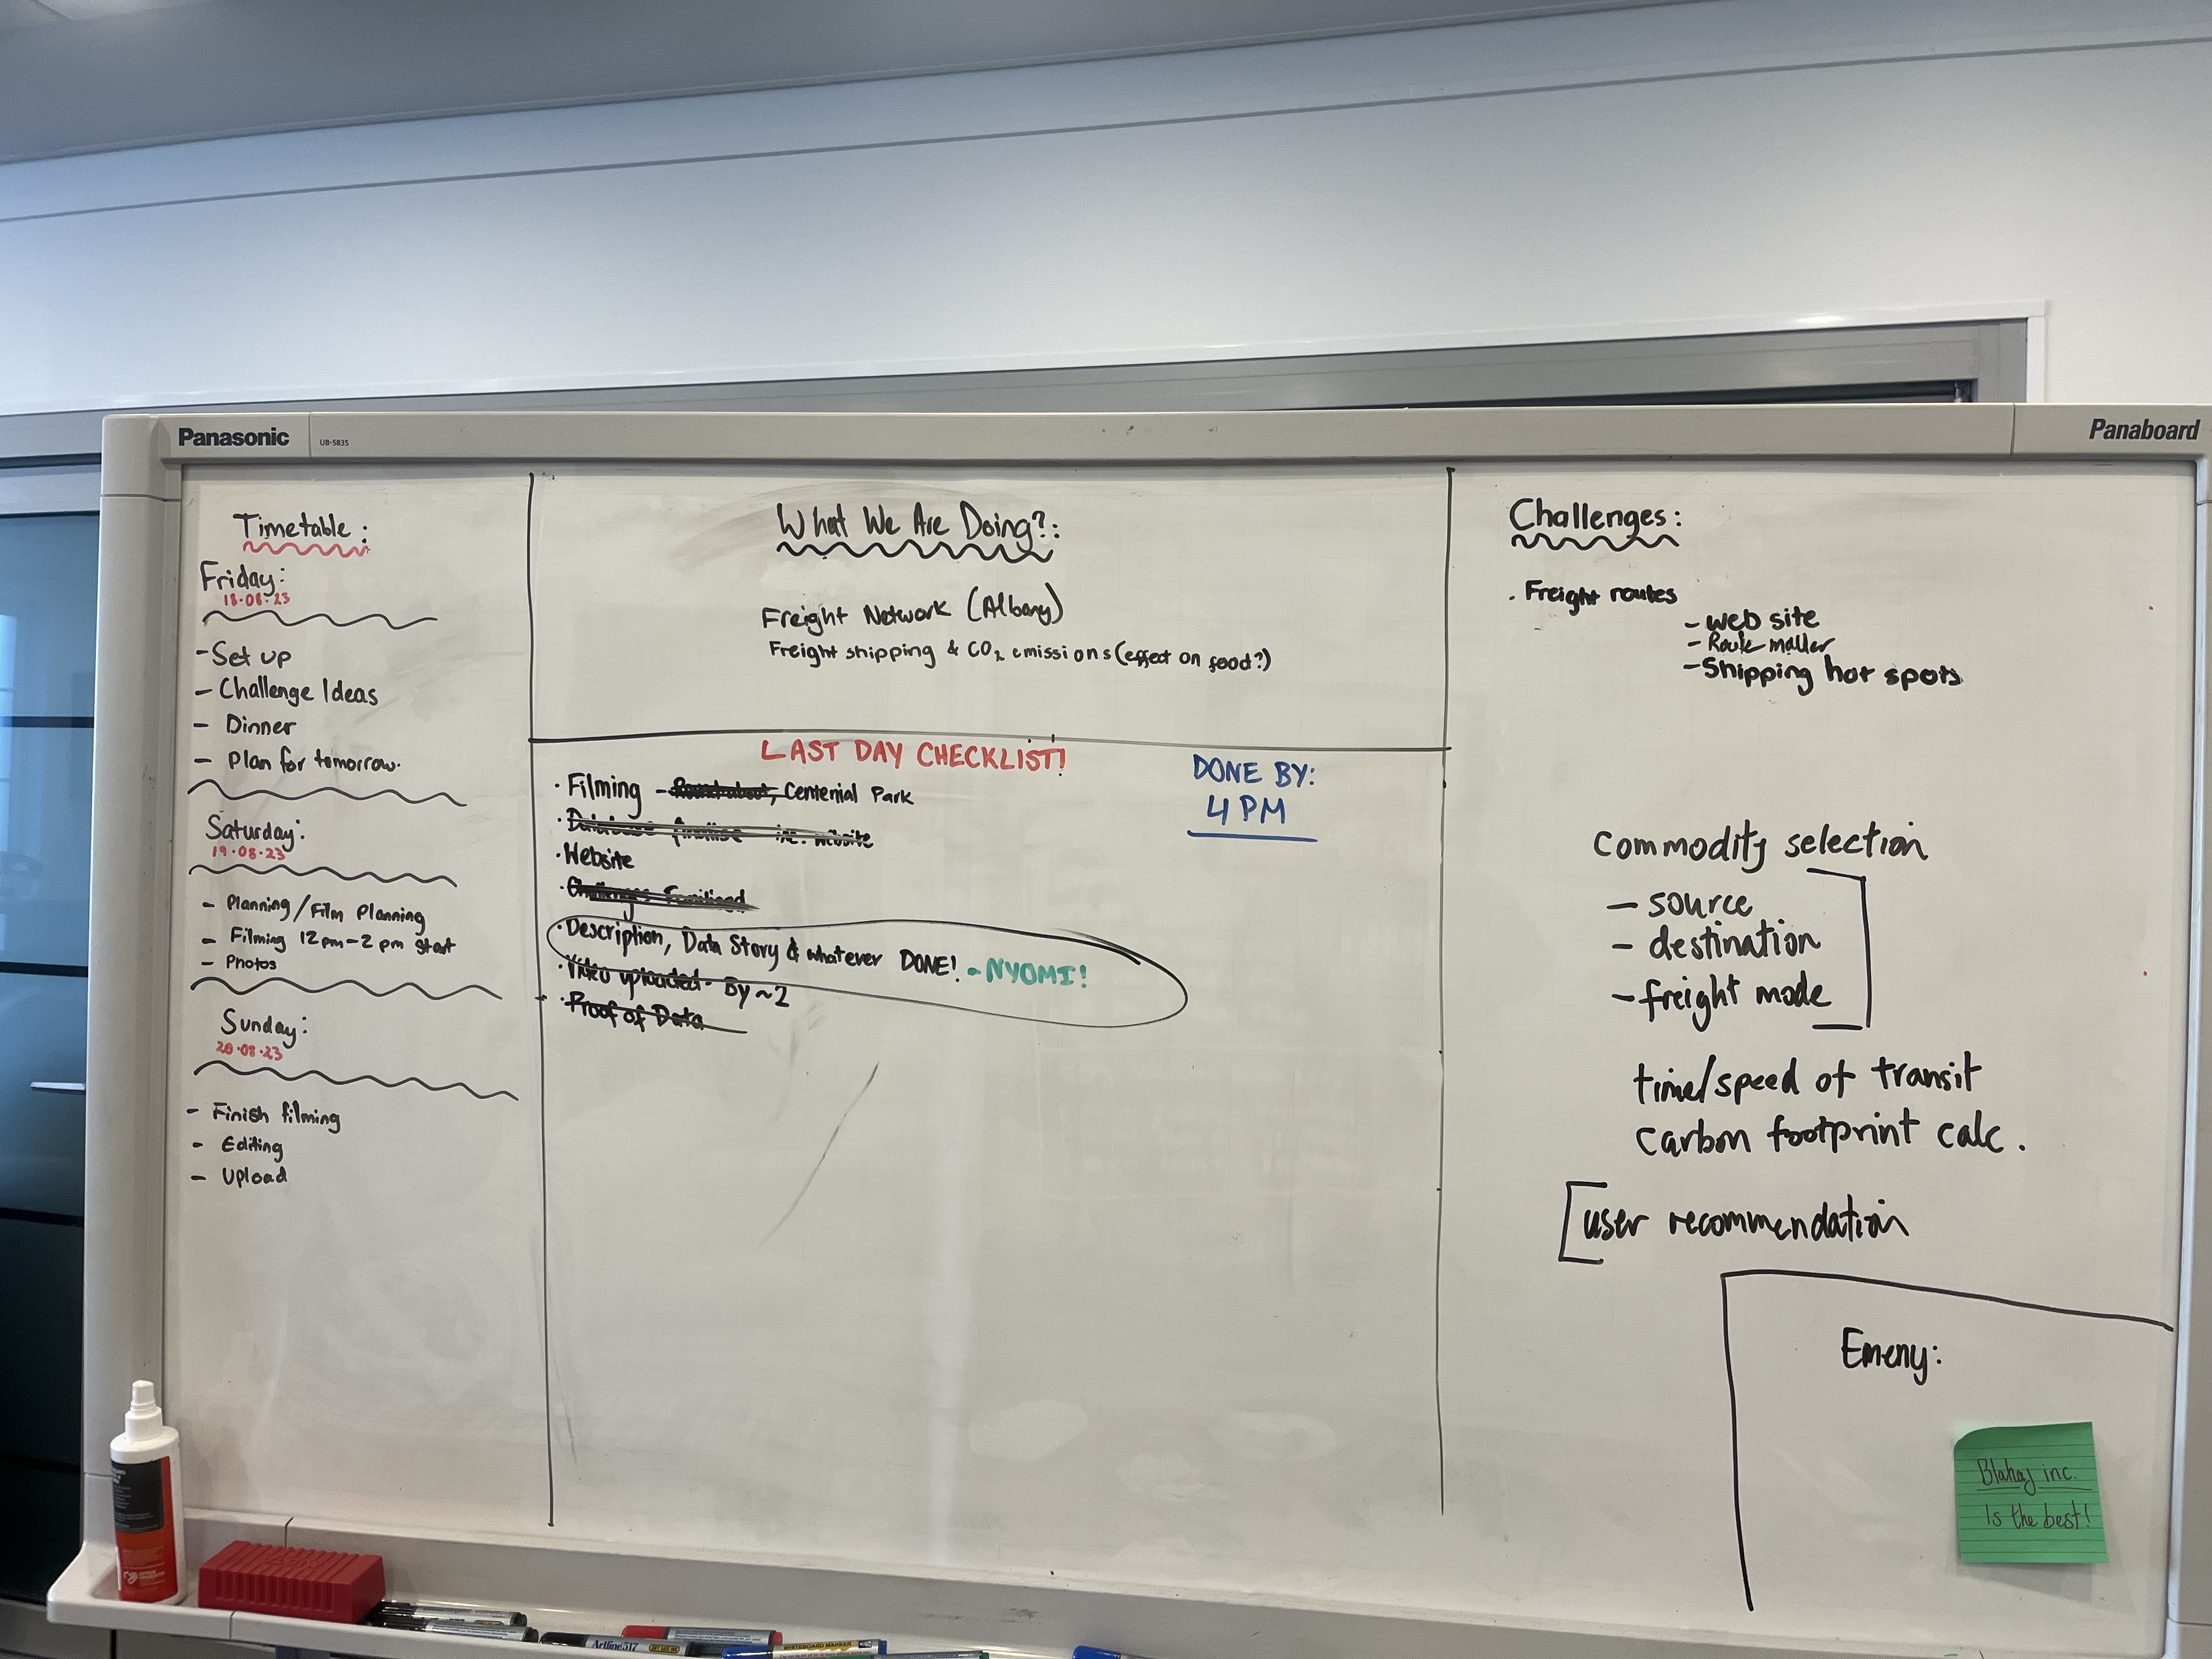 Panasonic
UB-5835
Panaboard
Timetable:
Friday:
18.08.23
- Set up
- Challenge Ideas
- Dinner
- Plan for tomorrow.
Saturday:
19.08.23
- Planning/Film Planning
- Filming 12pm-2pm start
- Photos
Sunday:
20.08.23
- Finish filming
- Editing
- Upload
What We Are Doing?:
Freight Network (Albany)
Freight shipping & CO₂ emissions (effect on food?)
LAST DAY CHECKLIST!
DONE BY:
4 PM
· Filming - Roundabout, Centenial Park
· Database finalise - website
· Website
· Challenges
· Description, Data Story & whatever DONE! - NYOMI!
· Video uploaded. By ~2
· Proof of Data
Challenges:
· Freight routes
- web site
- Route
- Shipping hot spots
commodity selection
- source
- destination
- freight mode
time/speed of transit
carbon footprint calc.
[user recommendation
Emeny:
Blahaj inc.
Is the best!
Artline 517
WHITEBOARD MARKER